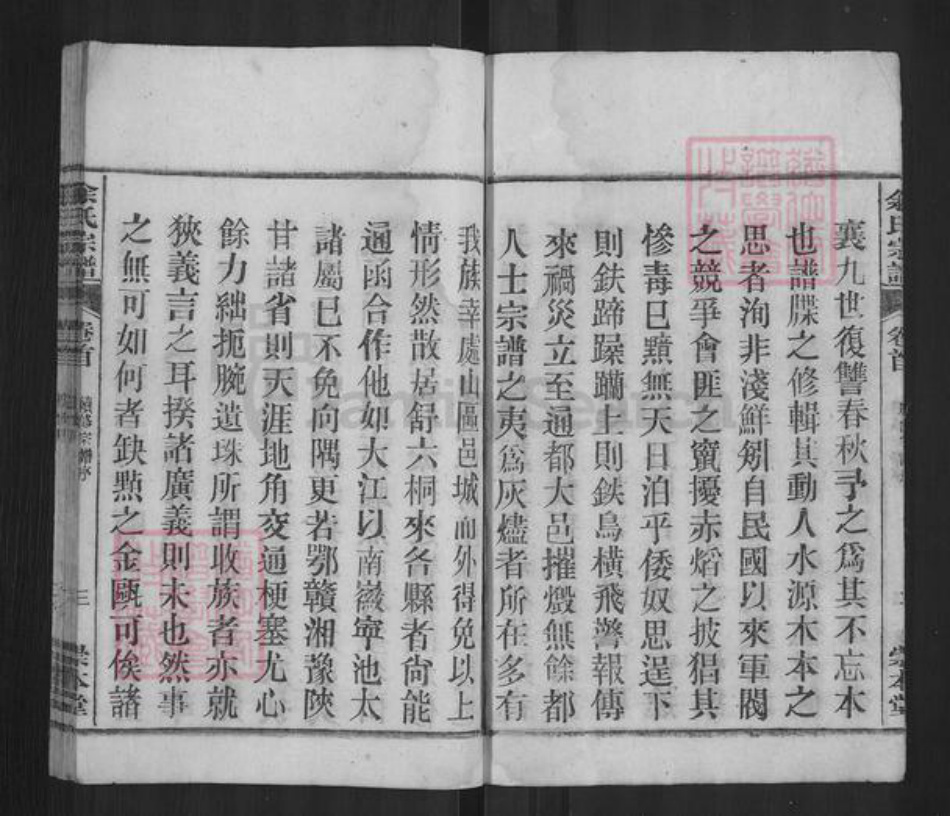 襄九世復讐春秋予之爲其不忘本
也譜牒之修輯其動人水源木本之
思者洵非淺鮮剏自民國以來軍閥
之競爭會匪之竄擾赤熖之披猖其
慘毒已黯無天日洎乎倭奴思逞下
則鉄蹄躁躪上則鉄鳥橫飛警報傳
來禍災立至通都大邑摧燬無餘都
人士宗譜之夷爲灰燼者所在多有
我族幸處山區邑城而外得免以上
情形然散居舒六桐來各縣者尙能
通函合作他如大江以南徽寧池太
諸屬已不免向隅更若鄂贛湘豫陝
甘諸省則天涯地角交通梗塞尤心
餘力絀扼腕遺珠所謂收族者亦就
狹義言之耳揆諸廣義則未也然事
之無可如何者缺點之金甌可俟諸
余氏宗譜
卷首
續修宗譜序
三
崇本堂
FamilySearch